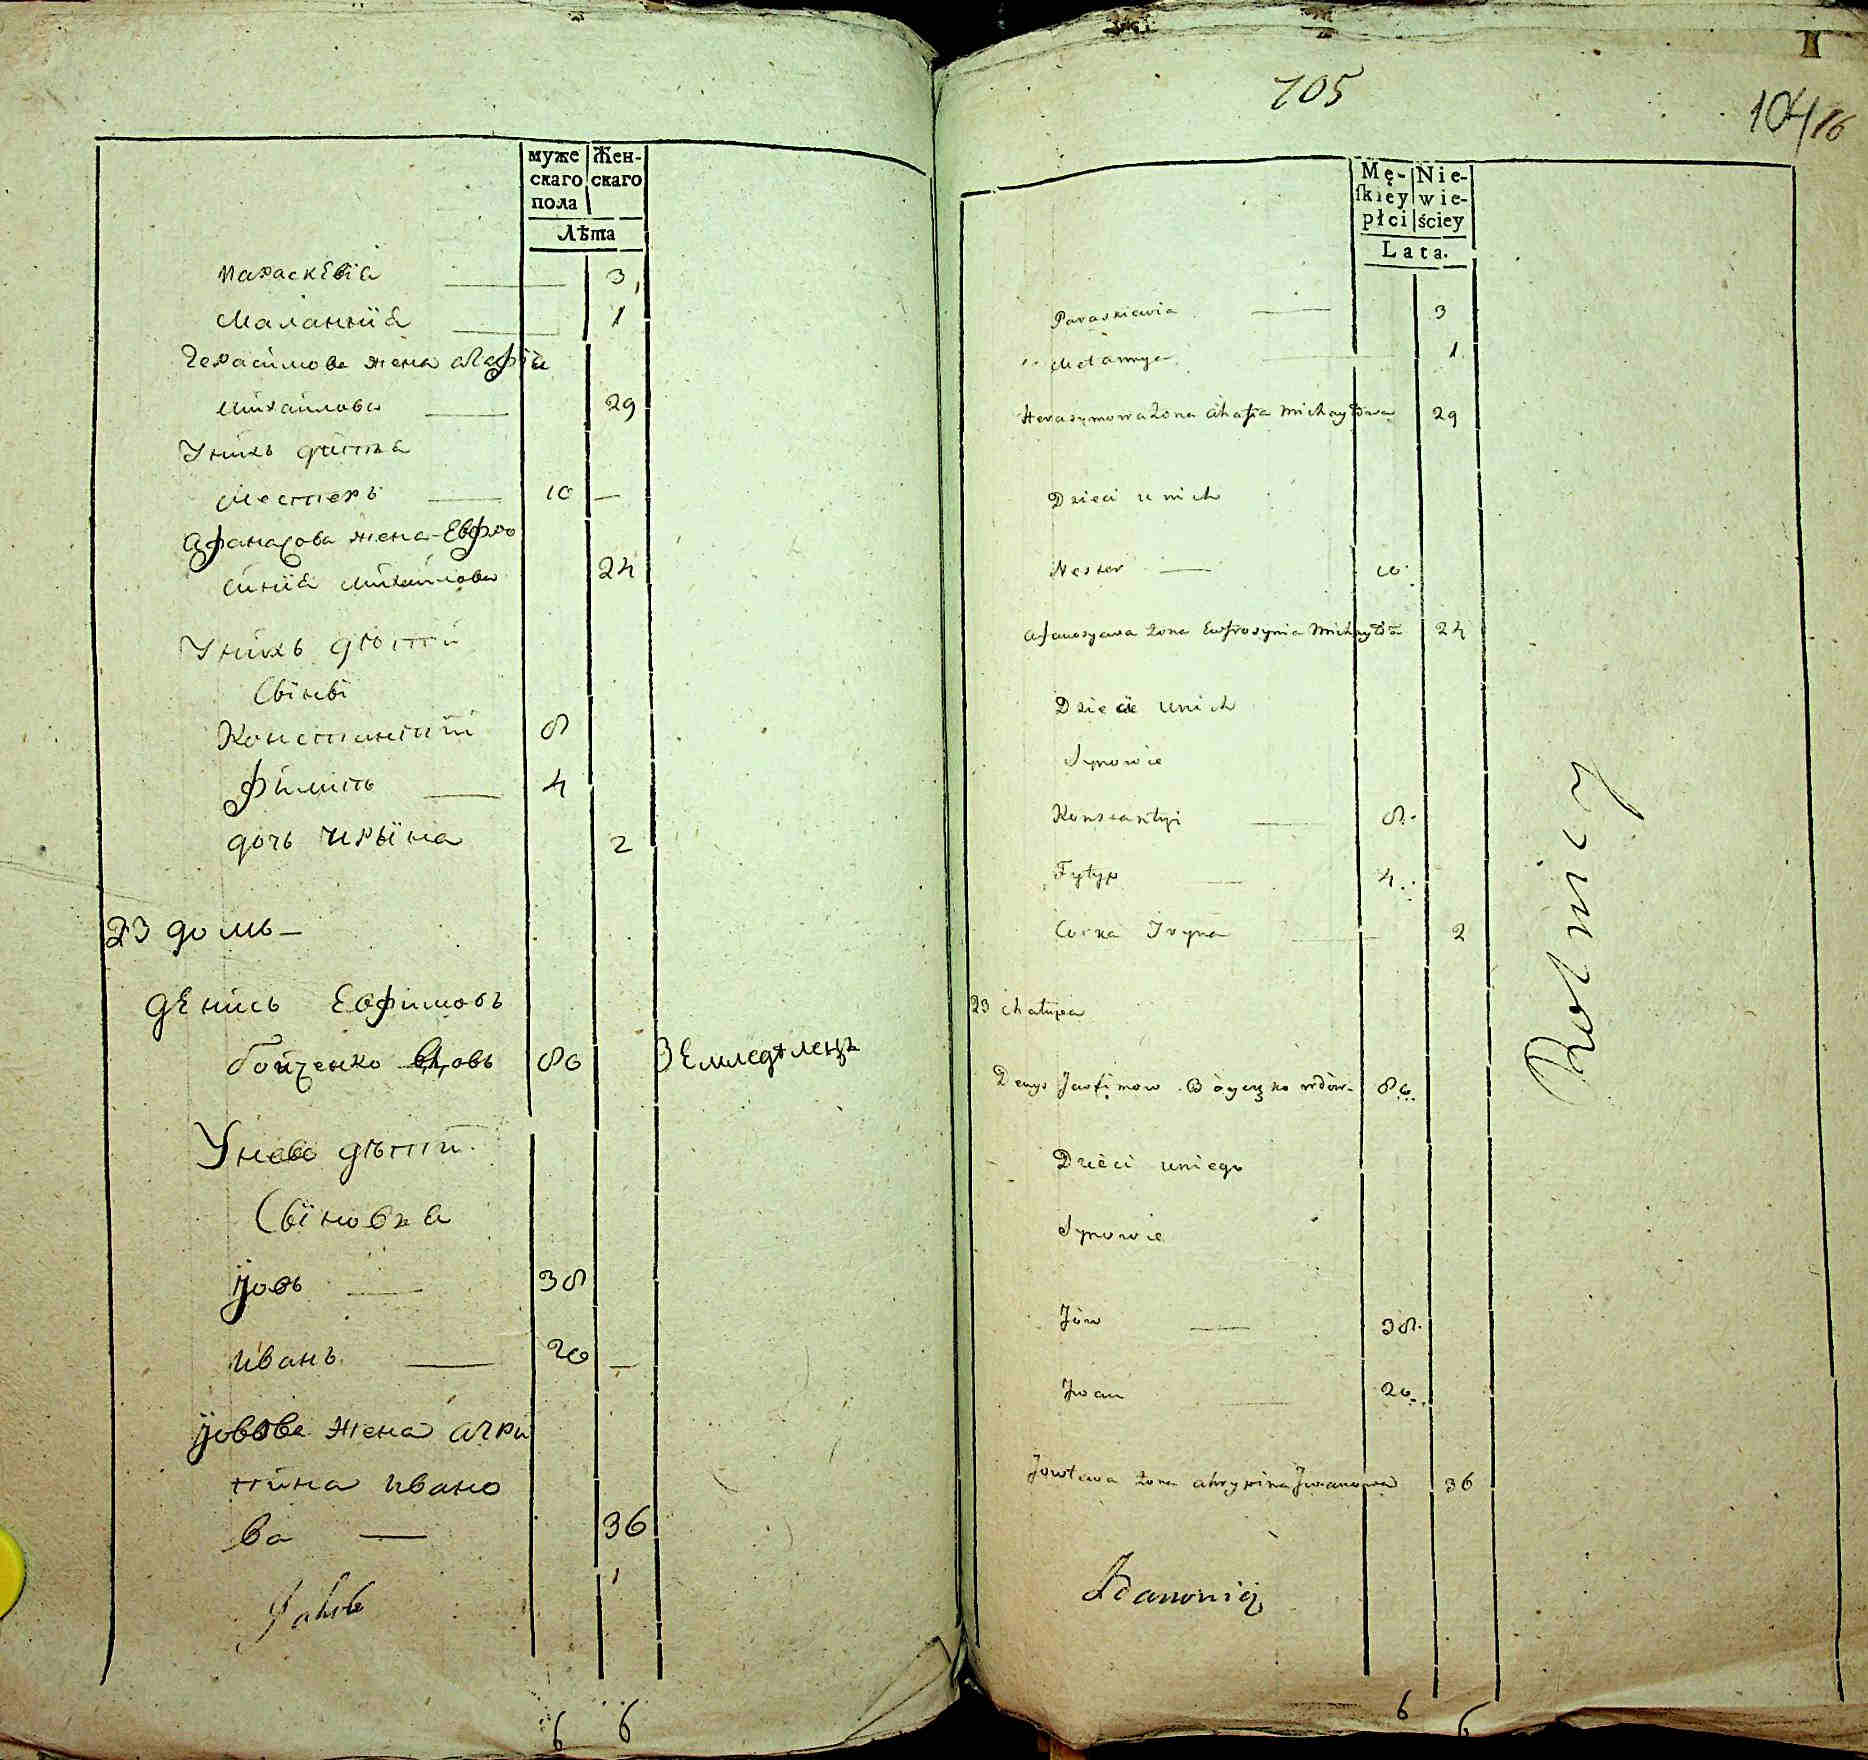 муже Жен-
скаго скаго
пола
Лѣта
параскевіа 3
Маланніа 1
Герасимова жена Агафіа
Михаилова 29
Унихъ дитка
Нестеръ 10 —
Афанасова жена Евфро
синиа Михаилова 24
Унихъ дѣти
Сыны
Констинтій 8
Филипъ 4
дочь Ирына 2
23 домъ —
Денисъ Евфимовъ
бойченко вдовъ 80 Земледѣлецъ
Унево дѣти
Сыновя
Іовъ 38
Иванъ 20 —
Іовова жена Агри
пина Ивано
ва — 36
Jakób
6 6
705
104 16
Mę- Nie-
ſkiey wie-
płci ściey
Lata.
Paraskiewia 3
Melannya 1
Herasymowa żona ahafia Michayłowa 29
Dzieci u nich
Nester 10
afanosyawa żona Eufrosynia Michayłowa 24
Dzieci unich
Synowie
Konstantyi 8
Fyłyp 4
Corka Iryna 2
23 chałupa
Denys Jwfimow Boyczko wdow. 80
Dzieci uniego
Synowie
Jów 38
Jwan 20
Jowtewa żona ahrypina Jwanowa 36
Rolnicy
6 6